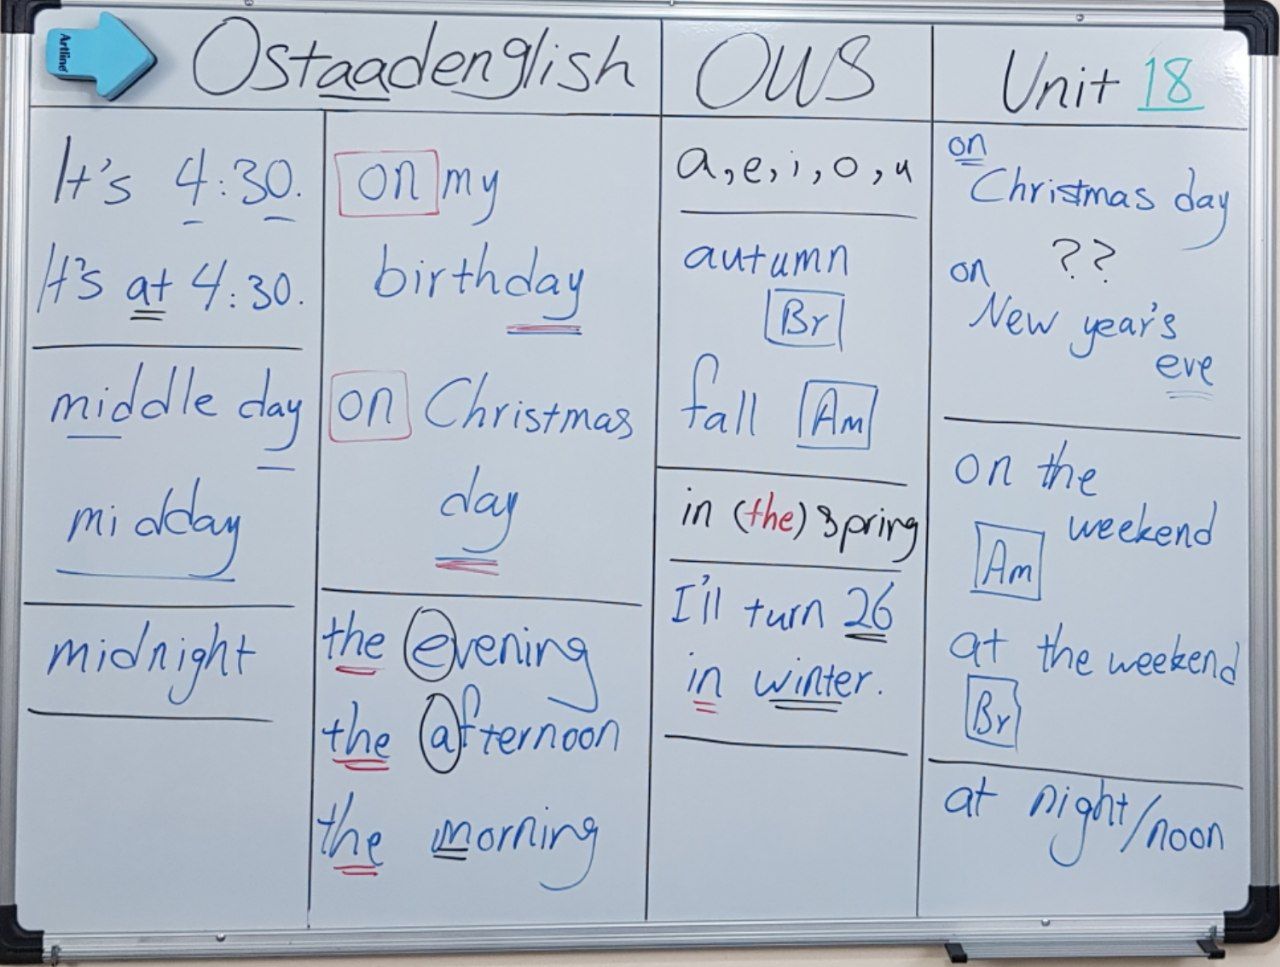 Artline
Ostaadenglish
OWS
Unit 18
It's 4:30.
It's at 4:30.
middle day
midday
midnight
on my
birthday
on Christmas
day
the evening
the afternoon
the morning
a, e, i, o, u
autumn
Br
fall Am
in (the) spring
I'll turn 26
in winter.
on
Christmas day
??
on
New year's
eve
on the
weekend
Am
at the weekend
Br
at night/noon